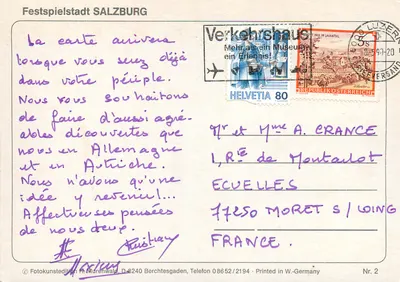 Festspielstadt SALZBURG
La carte arrivera
lorsque vous serez déjà
dans votre périple.
Nous vous souhaitons
de faire d'aussi agré-
ables découvertes que
nous en Allemagne
et en Autriche.
Nous n'avons qu'une
idée y revenir!...
Affectueuses pensées
de nous deux.
Christiane
Verkehrshaus
Mehr als ein Museum:
ein Erlebnis!
LUZERN
HELVETIA 80
REPUBLIK ÖSTERREICH
Mr et Mme A. CRANCE
1, Rte de Montarlot
ECUELLES
77250 MORET S/LOING
FRANCE.
© Fotokunstedition Berchtesgaden, Telefon 08652/2194 · Printed in W.-Germany
Nr. 2